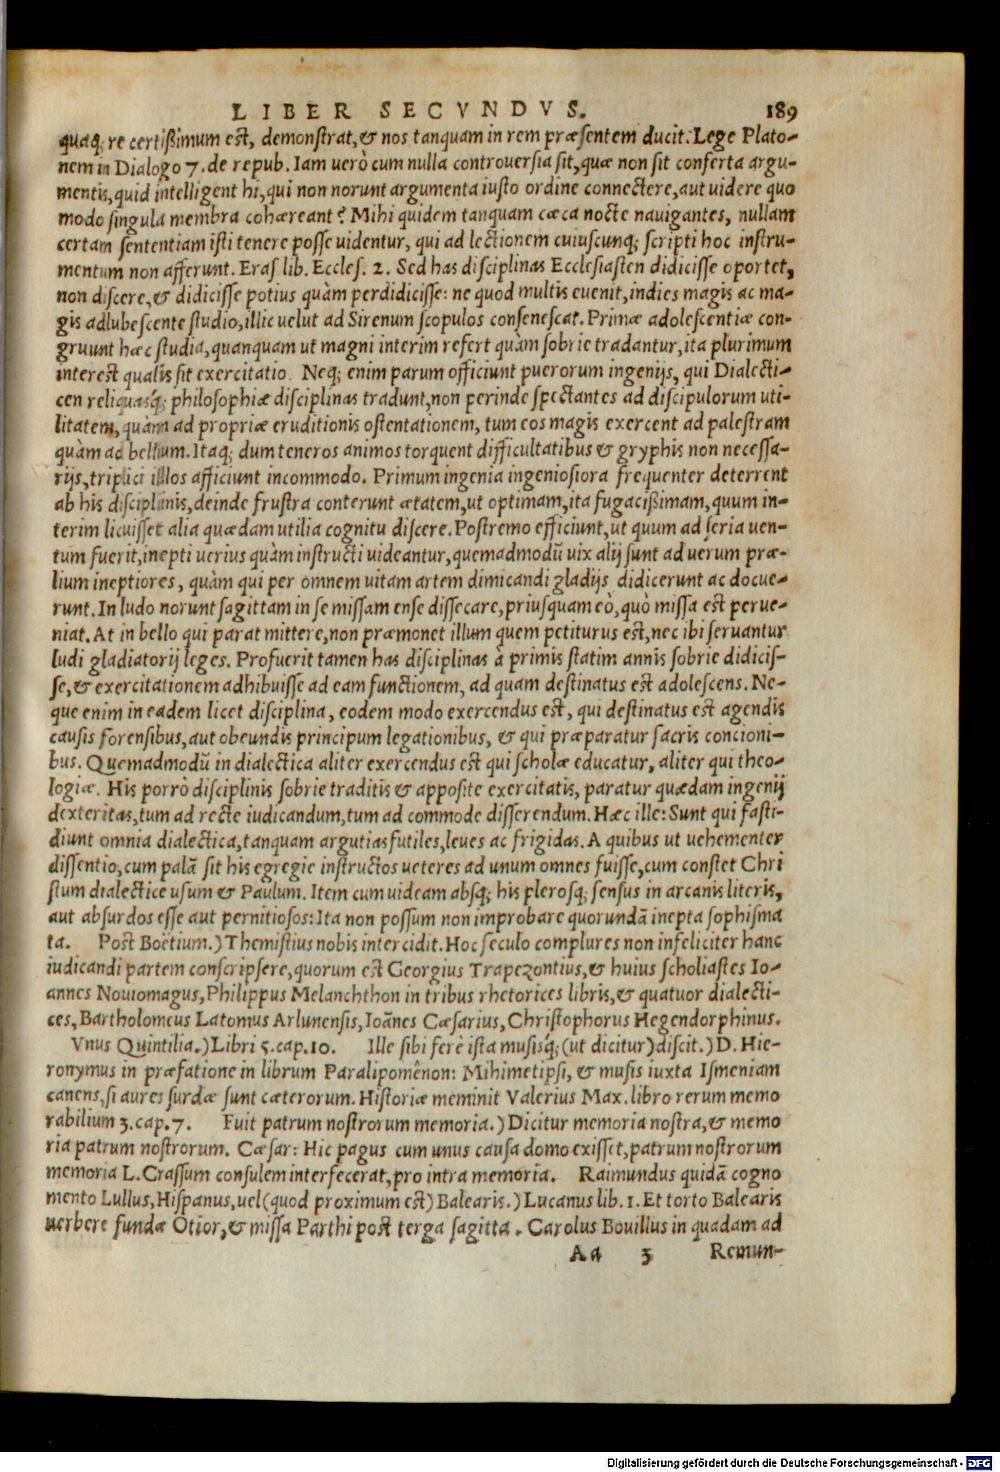 LIBER SECVNDVS. 189
quaq; re certißimum est, demonstrat,& nos tanquam in rem præsentem ducit. Lege Plato-
nem in Dialogo 7. de repub. Iam uerò cum nulla controuersia sit, quæ non sit conferta argu-
mentis, quid intelligent hi, qui non norunt argumenta iusto ordine connectere, aut uidere quo
modo singula membra cohæreant? Mihi quidem tanquam cæca nocte nauigantes, nullam
certam sententiam isti tenere posse uidentur, qui ad lectionem cuiuscunq; scripti hoc instru-
mentum non afferunt. Eras. lib. Eccles. 2. Sed has disciplinas Ecclesiasten didicisse oportet,
non discere,& didicisse potius quàm perdidicisse: ne quod multis euenit, indies magis ac ma-
gis adlubescente studio, illic uelut ad Sirenum scopulos consenescat. Primæ adolescentiæ con-
gruunt hæc studia, quanquam ut magni interim refert quàm sobrie tradantur, ita plurimum
interest qualis sit exercitatio. Neq; enim parum officiunt puerorum ingenijs, qui Dialecti-
cen reliquasq́; philosophiæ disciplinas tradunt, non perinde spectantes ad discipulorum uti-
litatem, quàm ad propriæ eruditionis ostentationem, tum eos magis exercent ad palestram
quàm ad bellum. Itaq; dum teneros animos torquent difficultatibus & gryphis non necessa-
rijs, triplici illos afficiunt incommodo. Primum ingenia ingeniosiora frequenter deterrent
ab his disciplinis, deinde frustra conterunt ætatem, ut optimam, ita fugacißimam, quum in-
terim licuisset alia quædam utilia cognitu discere. Postremo efficiunt, ut quum ad seria uen-
tum fuerit, inepti uerius quàm instructi uideantur, quemadmodũ uix alij sunt ad uerum præ-
lium ineptiores, quàm qui per omnem uitam artem dimicandi gladijs didicerunt ac docue-
runt. In ludo norunt sagittam in se missam ense dissecare, priusquam eò, quò missa est perue-
niat. At in bello qui parat mittere, non præmonet illum quem petiturus est, nec ibi seruantur
ludi gladiatorij leges. Profuerit tamen has disciplinas à primis statim annis sobrie didicis-
se,& exercitationem adhibuisse ad eam functionem, ad quam destinatus est adolescens. Ne-
que enim in eadem licet disciplina, eodem modo exercendus est, qui destinatus est agendis
causis forensibus, aut obeundis principum legationibus, & qui præparatur sacris concioni-
bus. Quemadmodũ in dialectica aliter exercendus est qui scholæ educatur, aliter qui theo-
logiæ. His porrò disciplinis sobrie traditis & apposite exercitatis, paratur quædam ingenij
dexteritas, tum ad recte iudicandum, tum ad commode disserendum. Hæc ille: Sunt qui fasti-
diunt omnia dialectica, tanquam argutias futiles, leues ac frigidas. A quibus ut uehementer
dissentio, cum palã sit his egregie instructos ueteres ad unum omnes fuisse, cum constet Chri
stum dialectice usum & Paulum. Item cum uideam absq; his plerosq; sensus in arcanis literis,
aut absurdos esse aut pernitiosos: Ita non possum non improbare quorundã inepta sophisma
ta. Post Boëtium.) Themistius nobis intercidit. Hoc seculo complures non infeliciter hanc
iudicandi partem conscripsere, quorum est Georgius Trapezontius,& huius scholiastes Io-
annes Nouiomagus, Philippus Melanchthon in tribus rhetorices libris,& quatuor dialecti-
ces, Bartholomeus Latomus Arlunensis, Ioãnes Cæsarius, Christophorus Hegendorphinus.
Vnus Quintilia.) Libri 5. cap. 10. Ille sibi ferè ista musisq́; (ut dicitur) discit.) D. Hie-
ronymus in præfatione in librum Paralipomênon: Mihimetipsi,& musis iuxta Ismeniam
canens, si aures surdæ sunt cæterorum. Historiæ meminit Valerius Max. libro rerum memo
rabilium 3. cap. 7. Fuit patrum nostrorum memoria.) Dicitur memoria nostra,& memo
ria patrum nostrorum. Cæsar: Hic pagus cum unus causa domo exisset, patrum nostrorum
memoria L. Crassum consulem interfecerat, pro intra memoriã. Raimundus quidã cogno
mento Lullus, Hispanus, uel (quod proximum est) Balearis.) Lucanus lib. 1. Et torto Balearis
uerbere fundæ Otior,& missa Parthi post terga sagitta. Carolus Bouillus in quadam ad
Aa 3 Remun-
Digitalisierung gefördert durch die Deutsche Forschungsgemeinschaft - DFG